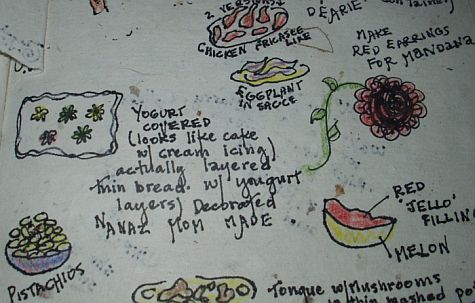 2 VERS
DEARIE"
CHICKEN FRICASEE
LIKE
MAKE
RED EARRINGS
FOR MANDANA
EGGPLANT
IN SAUCE
YOGURT
COVERED
(looks like cake
w/ cream icing)
actually layered
thin bread. w/ yougurt
layers) Decorated
NANAZ MOM MADE
RED
'JELLO'
FILLIN
MELON
PISTACHIOS
Tongue w/Mushrooms
thin mashed Po